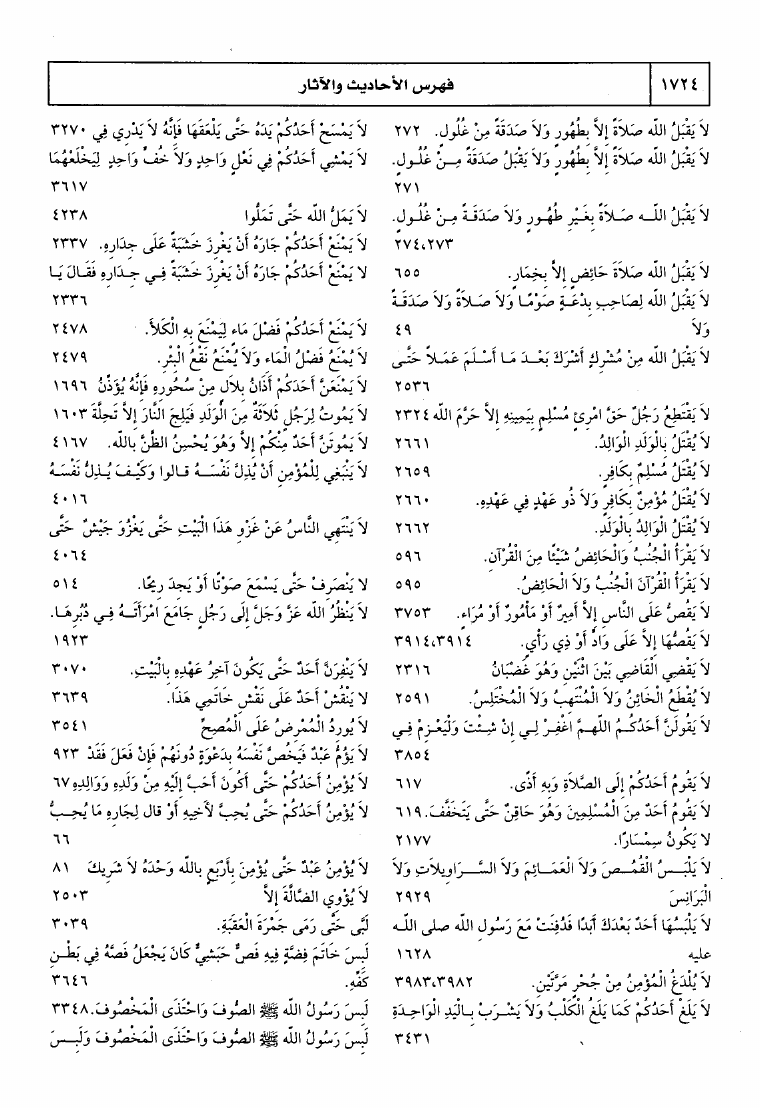 ١٧٢٤
فهرس الأحاديث والآثار
لاَ يَقْبَلُ الله صَلاَةً إِلاَّ بِطُهُورٍ وَلاَ صَدَقَةً مِنْ غُلُولٍ. ٢٧٢
لاَ يَقْبَلُ الله صَلاَةً إِلاَّ بِطُهُورٍ وَلاَ يَقْبَلُ صَدَقَةً مِـنْ غُلُولٍ.
٢٧١
لاَ يَقْبَلُ اللـه صَلاَةً بِغَيْرِ طُهُـورٍ وَلاَ صَدَقَـةً مِـنْ غُلُولٍ.
٢٧٤،٢٧٣
لاَ يَقْبَلُ الله صَلاَةَ حَائِضٍ إِلاَّ بِخِمَارٍ. ٦٥٥
لاَ يَقْبَلُ الله لِصَاحِبِ بِدْعَـةٍ صَوْمًـا وَلاَ صَـلاَةً وَلاَ صَدَقَـةً
وَلاَ ٤٩
لاَ يَقْبَلُ الله مِنْ مُشْرِكٍ أَشْرَكَ بَعْـدَ مَـا أَسْلَـمَ عَمَـلاً حَتَّـى
٢٥٣٦
لاَ يَقْتَطِعُ رَجُلٌ حَقَّ امْرِئٍ مُسْلِمٍ بِيَمِينِهِ إِلاَّ حَرَّمَ الله ٢٣٢٤
لاَ يُقْتَلُ بِالْوَلَدِ الْوَالِدُ. ٢٦٦١
لاَ يُقْتَلُ مُسْلِمٌ بِكَافِرٍ. ٢٦٥٩
لاَ يُقْتَلُ مُؤْمِنٌ بِكَافِرٍ وَلاَ ذُو عَهْدٍ فِي عَهْدِهِ. ٢٦٦٠
لاَ يُقْتَلُ الْوَالِدُ بِالْوَلَدِ. ٢٦٦٢
لاَ يَقْرَأُ الْجُنُبُ وَالْحَائِضُ شَيْئًا مِنَ الْقُرْآنِ. ٥٩٦
لاَ يَقْرَأُ الْقُرْآنَ الْجُنُبُ وَلاَ الْحَائِضُ. ٥٩٥
لاَ يَقُصُّ عَلَى النَّاسِ إِلاَّ أَمِيرٌ أَوْ مَأْمُورٌ أَوْ مُرَاءٍ. ٣٧٥٣
لاَ يَقُصُّهَا إِلاَّ عَلَى وَادٍّ أَوْ ذِي رَأْيٍ. ٣٩١٤،٣٩١٤
لاَ يَقْضِي الْقَاضِي بَيْنَ اثْنَيْنِ وَهُوَ غَضْبَانُ ٢٣١٦
لاَ يُقْطَعُ الْخَائِنُ وَلاَ الْمُنْتَهِبُ وَلاَ الْمُخْتَلِسُ. ٢٥٩١
لاَ يَقُولَنَّ أَحَدُكُـمُ اللهـمَّ اغْفِـرْ لِـي إِنْ شِـئْتَ وَلْيَعْـزِمْ فِـي
٣٨٥٤
لاَ يَقُومُ أَحَدُكُمْ إِلَى الصَّلاَةِ وَبِهِ أَذًى. ٦١٧
لاَ يَقُومُ أَحَدٌ مِنَ الْمُسْلِمِينَ وَهُوَ حَاقِنٌ حَتَّى يَتَخَفَّفَ. ٦١٩
لا يَكُونُ سِمْسَارًا. ٢١٧٧
لاَ يَلْبَـسُ الْقُمُـصَ وَلاَ الْعَمَـائِمَ وَلاَ السَّـرَاوِيلاَتِ وَلاَ
الْبَرَانِسَ ٢٩٢٩
لاَ يَلْبَسُهَا أَحَدٌ بَعْدَكَ أَبَدًا فَدُفِنَتْ مَعَ رَسُولِ الله صلى اللـه
عليه ١٦٢٨
لاَ يُلْدَغُ الْمُؤْمِنُ مِنْ جُحْرٍ مَرَّتَيْنِ. ٣٩٨٣،٣٩٨٢
لاَ يَلَغْ أَحَدُكُمْ كَمَا يَلَغُ الْكَلْبُ وَلاَ يَشْـرَبْ بِـالْيَدِ الْوَاحِـدَةِ
٣٤٣١
لاَ يَمْسَحْ أَحَدُكُمْ يَدَهُ حَتَّى يَلْعَقَهَا فَإِنَّهُ لاَ يَدْرِي فِي ٣٢٧٠
لاَ يَمْشِي أَحَدُكُمْ فِي نَعْلٍ وَاحِدٍ وَلاَ خُفٍّ وَاحِدٍ لِيَخْلَعْهُمَا
٣٦١٧
لاَ يَمَلُّ الله حَتَّى تَمَلُّوا ٤٢٣٨
لاَ يَمْنَعْ أَحَدُكُمْ جَارَهُ أَنْ يَغْرِزَ خَشَبَةً عَلَى جِدَارِهِ. ٢٣٣٧
لا يَمْنَعْ أَحَدُكُمْ جَارَهُ أَنْ يَغْرِزَ خَشَبَةً فِـي جِـدَارِهِ فَقَـالَ يَـا
٢٣٣٦
لاَ يَمْنَعْ أَحَدُكُمْ فَضْلَ مَاءٍ لِيَمْنَعَ بِهِ الْكَلأَ. ٢٤٧٨
لاَ يُمْنَعُ فَضْلُ الْمَاءِ وَلاَ يُمْنَعُ نَقْعُ الْبِئْرِ. ٢٤٧٩
لاَ يَمْنَعَنَّ أَحَدَكُمْ أَذَانُ بِلاَلٍ مِنْ سُحُورِهِ فَإِنَّهُ يُؤَذِّنُ ١٦٩٦
لاَ يَمُوتُ لِرَجُلٍ ثَلاَثَةٌ مِنَ الْوَلَدِ فَيَلِجَ النَّارَ إِلاَّ تَحِلَّةَ ١٦٠٣
لاَ يَمُوتَنَّ أَحَدٌ مِنْكُمْ إِلاَّ وَهُوَ يُحْسِنُ الظَّنَّ بالله. ٤١٦٧
لاَ يَنْبَغِي لِلْمُؤْمِنِ أَنْ يُذِلَّ نَفْسَـهُ قـالوا وَكَيْـفَ يُـذِلُّ نَفْسَـهُ
٤٠١٦
لاَ يَنْتَهِي النَّاسُ عَنْ غَزْوِ هَذَا الْبَيْتِ حَتَّى يَغْزُوَ جَيْشٌ حَتَّى
٤٠٦٤
لا يَنْصَرِفْ حَتَّى يَسْمَعَ صَوْتًا أَوْ يَجِدَ رِيحًا. ٥١٤
لاَ يَنْظُرُ الله عَزَّ وَجَلَّ إِلَى رَجُلٍ جَامَعَ امْرَأَتَـهُ فِـي دُبُرِهَـا.
١٩٢٣
لاَ يَنْفِرَنَّ أَحَدٌ حَتَّى يَكُونَ آخِرُ عَهْدِهِ بِالْبَيْتِ. ٣٠٧٠
لا يَنْقُشْ أَحَدٌ عَلَى نَقْشِ خَاتَمِي هَذَا. ٣٦٣٩
لاَ يُورِدُ الْمُمْرِضُ عَلَى الْمُصِحِّ ٣٥٤١
لاَ يَؤُمُّ عَبْدٌ فَيَخُصَّ نَفْسَهُ بِدَعْوَةٍ دُونَهُمْ فَإِنْ فَعَلَ فَقَدْ ٩٢٣
لاَ يُؤْمِنُ أَحَدُكُمْ حَتَّى أَكُونَ أَحَبَّ إِلَيْهِ مِنْ وَلَدِهِ وَوَالِدِهِ ٦٧
لاَ يُؤْمِنُ أَحَدُكُمْ حَتَّى يُحِبَّ لأَخِيهِ أَوْ قال لِجَارِهِ مَا يُحِـبُّ
٦٦
لاَ يُؤْمِنُ عَبْدٌ حَتَّى يُؤْمِنَ بِأَرْبَعٍ بالله وَحْدَهُ لاَ شَرِيكَ ٨١
لاَ يُؤْوِي الضَّالَّةَ إِلاَّ ٢٥٠٣
لَبَّى حَتَّى رَمَى جَمْرَةَ الْعَقَبَةِ. ٣٠٣٩
لَبِسَ خَاتَمَ فِضَّةٍ فِيهِ فَصٌّ حَبَشِيٌّ كَانَ يَجْعَلُ فَصَّهُ فِي بَطْـنِ
كَفِّهِ. ٣٦٤٦
لَبِسَ رَسُولُ الله ﷺ الصُّوفَ وَاحْتَذَى الْمَخْصُوفَ. ٣٣٤٨
لَبِسَ رَسُولُ الله ﷺ الصُّوفَ وَاحْتَذَى الْمَخْصُوفَ وَلَبِـسَ